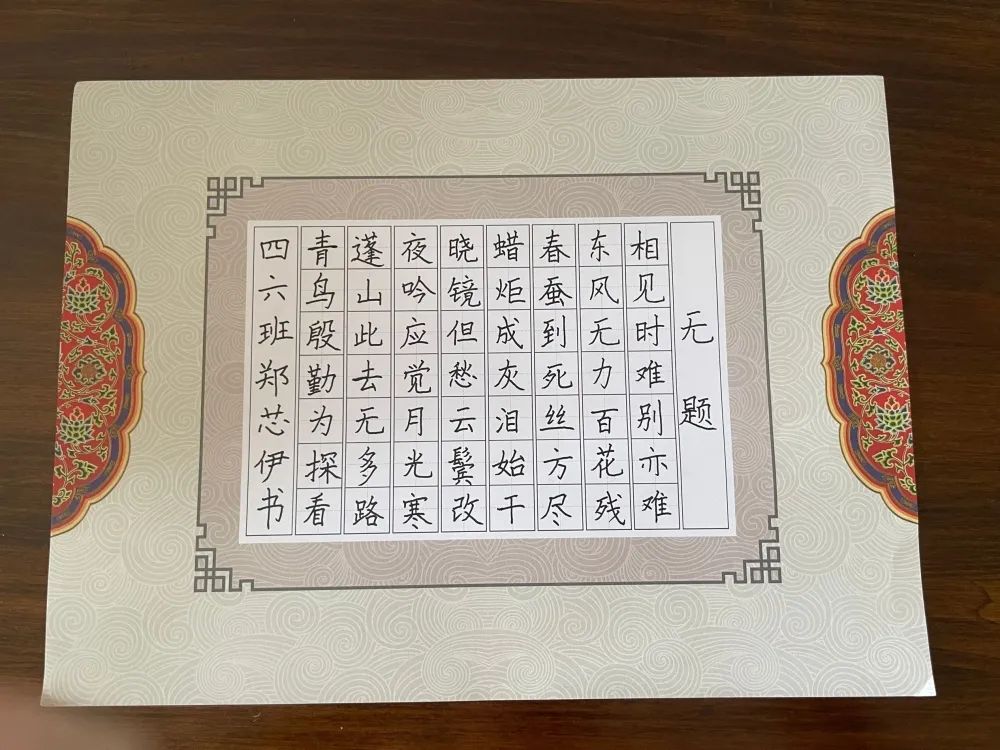 无题
相见时难别亦难
东风无力百花残
春蚕到死丝方尽
蜡炬成灰泪始干
晓镜但愁云鬓改
夜吟应觉月光寒
蓬山此去无多路
青鸟殷勤为探看
四六班郑芯伊书